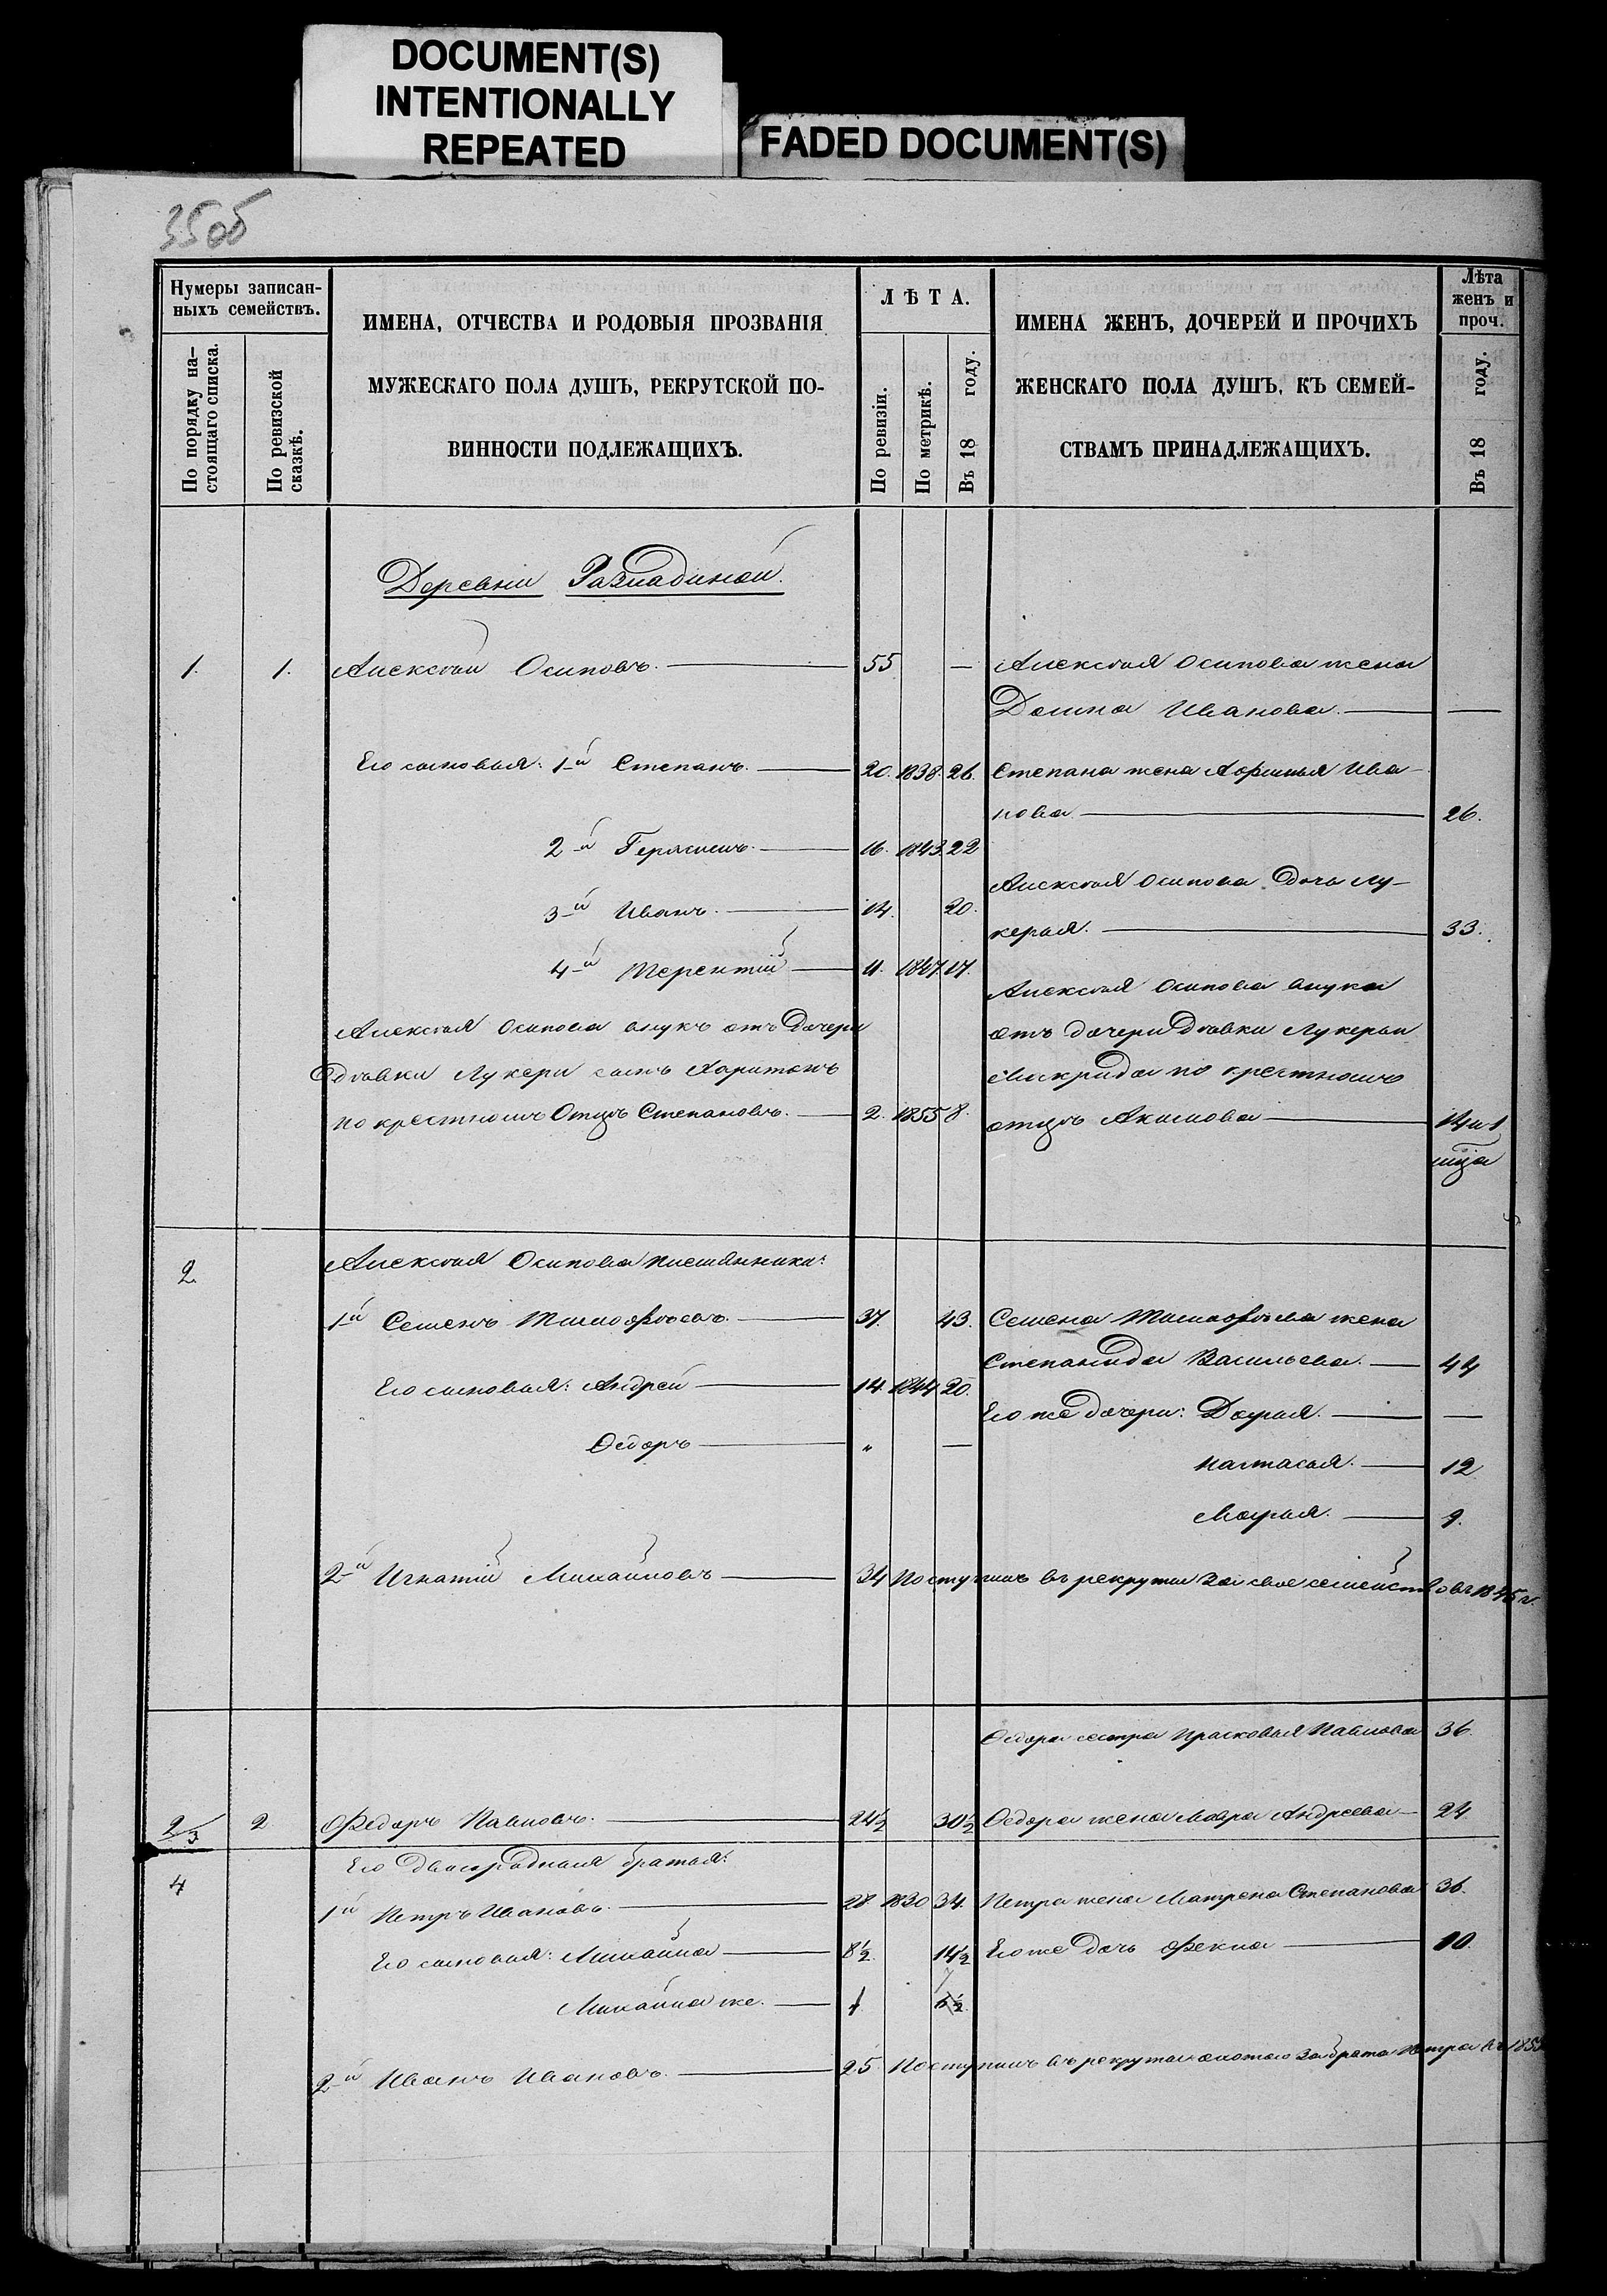 DOCUMENT(S)
INTENTIONALLY
REPEATED
FADED DOCUMENT(S)
35об
Нумеры записан-
ныхъ семействъ.
По порядку на-
стоящаго списка.
По ревизской
сказкѣ.
ИМЕНА, ОТЧЕСТВА И РОДОВЫЯ ПРОЗВАНІЯ
МУЖЕСКАГО ПОЛА ДУШЪ, РЕКРУТСКОЙ ПО-
ВИННОСТИ ПОДЛЕЖАЩИХЪ.
ЛѢТА.
По ревизіи.
По метрикѣ.
Въ 18 году.
ИМЕНА ЖЕНЪ, ДОЧЕРЕЙ И ПРОЧИХЪ
ЖЕНСКАГО ПОЛА ДУШЪ, КЪ СЕМЕЙ-
СТВАМЪ ПРИНАДЛЕЖАЩИХЪ.
Лѣта
женъ и
проч.
Въ 18 году.
Деревни
1. 1. Алексѣй Осиповъ. — 55 — Алексѣя Осипова жена
Домна Иванова. — —
Его сыновья: 1й Степанъ. — 20. 1838. 26. Степана жена Афимья Ива-
нова — 26.
2й Герасимъ. — 16. 1843. 22
Алексѣя Осипова дочь Лу-
3й Иванъ. — 14. 20.
керья. — 33.
4й Терентій — 11. 1847. 17.
Алексѣя Осипова внука
Алексѣя Осипова внукъ отъ дочери
отъ дочери дѣвки Лукерьи
дѣвки Лукери сынъ Харитонъ
Макрида по крестному
по крестному Отцу Степановъ. — 2. 1855 8.
отцу Акимова — 14 и 1
мца
2 Алексѣя Осипова племянники:
1й Семенъ Тимофѣевъ. — 37. 43. Семена Тимофѣева жена
Степанида Васильева. — 44
Его сыновья: Андрей — 14. 1844 20.
Его же дочери: Дарья. — —
Ѳедоръ — " —
Настасья. — 12
Марья. — 9.
2й Игнатій Михайловъ — 34 Поступилъ въ рекруты за свое семейство въ 1845 г.
Ѳедора сестра Прасковья Павлова 36.
2/3 2 Ѳедоръ Павловъ. — 24½ 30½ Ѳедора жена Мавра Андреева — 24
Его двоюродныя братья:
4
1й Петръ Ивановъ. — 28 1830 34. Петра жена Матрена Степанова 36.
Его сыновья: Михайла — 8½ 14½ Его же дочь Фекла — 10.
Михайла же. — 1 7
2й Иванъ Ивановъ. — 25 Поступилъ въ рекруты охотою за брата Петра въ